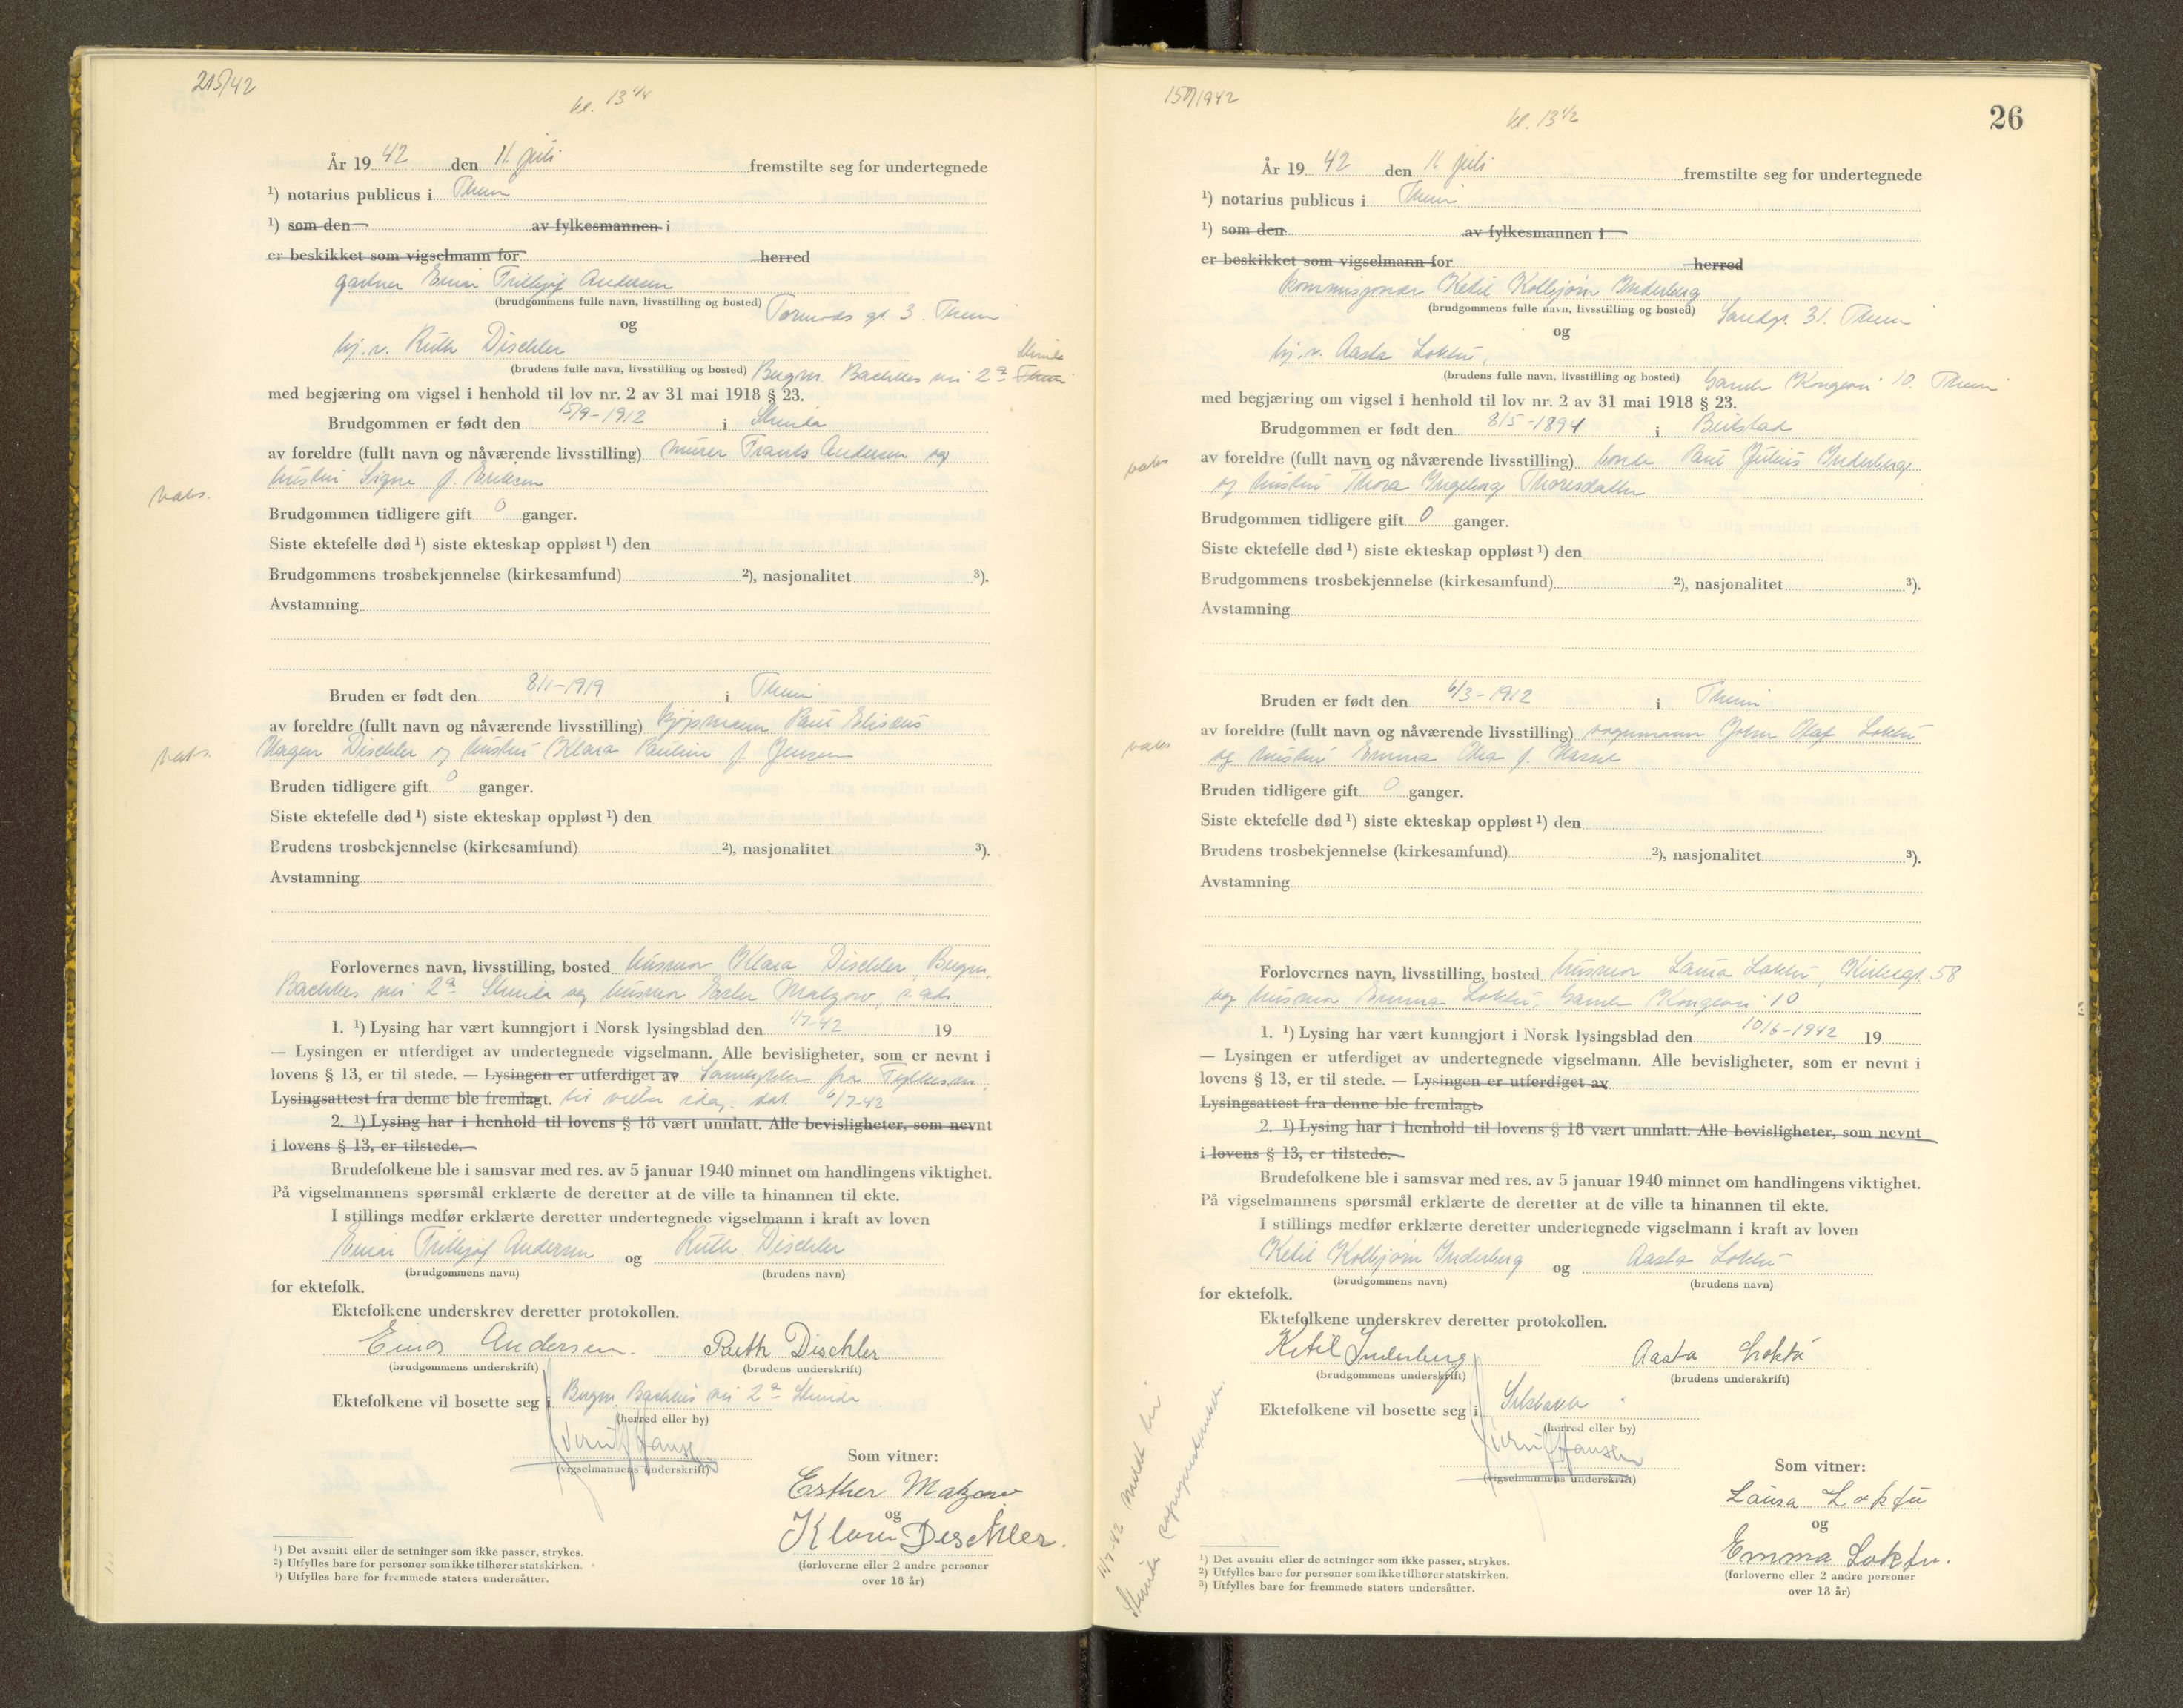 215/42
kl. 13 1/4
År 19 42 den 11 juli fremstilte seg for undertegnede
¹) notarius publicus i Thrm
¹) som den av fylkesmannen i
er beskikket som vigselmann for herred
gartner Einar Frithjof Andersen
(brudgommens fulle navn, livsstilling og bosted) Tormods gt. 3. Thrm
og
hj.v. Ruth Dischler
Strinda
(brudens fulle navn, livsstilling og bosted) Bugm. Bachkes vei 2a Thrm
med begjæring om vigsel i henhold til lov nr. 2 av 31 mai 1918 § 23.
Brudgommen er født den 15/9-1912 i Strinda
av foreldre (fullt navn og nåværende livsstilling) murer Frants Andersen og
hustru Signe f. Eriksen
vaks.
Brudgommen tidligere gift 0 ganger.
Siste ektefelle død ¹) siste ekteskap oppløst ¹) den
Brudgommens trosbekjennelse (kirkesamfund) ²), nasjonalitet ³).
Avstamning
Bruden er født den 8/1-1919 i Thrm
av foreldre (fullt navn og nåværende livsstilling) kjøpmann Paul Elisæus
Hagen Dischler og hustru Klara Pauline f. Jensen
vaks.
Bruden tidligere gift 0 ganger.
Siste ektefelle død ¹) siste ekteskap oppløst ¹) den
Brudens trosbekjennelse (kirkesamfund) ²), nasjonalitet ³).
Avstamning
Forlovernes navn, livsstilling, bosted husmor Klara Dischler, Bugm.
Bachkes vei 2a Strinda og husmor Ester Matzow, s. ads.
1. ¹) Lysing har vært kunngjort i Norsk lysingsblad den 1/7-42 19
— Lysingen er utferdiget av undertegnede vigselmann. Alle bevisligheter, som er nevnt i
lovens § 13, er til stede. — Lysingen er utferdiget av Samtykke fra Fylkesm.
Lysingsattest fra denne ble fremlagt. til vielse idag. dat. 6/7-42
2. ¹) Lysing har i henhold til lovens § 18 vært unnlatt. Alle bevisligheter, som nevnt
i lovens § 13, er tilstede.
Brudefolkene ble i samsvar med res. av 5 januar 1940 minnet om handlingens viktighet.
På vigselmannens spørsmål erklærte de deretter at de ville ta hinannen til ekte.
I stillings medfør erklærte deretter undertegnede vigselmann i kraft av loven
Einar Frithjof Andersen og Ruth Dischler
(brudgommens navn) (brudens navn)
for ektefolk.
Ektefolkene underskrev deretter protokollen.
Einar Andersen. Ruth Dischler
(brudgommens underskrift) (brudens underskrift)
Ektefolkene vil bosette seg i Bugm. Bachkes vei 2a Strinda
(herred eller by)
(vigselmannens underskrift)
Som vitner:
Esther Matzow
og
Klara Dischler.
(forloverne eller 2 andre personer
over 18 år)
¹) Det avsnitt eller de setninger som ikke passer, strykes.
²) Utfylles bare for personer som ikke tilhører statskirken.
³) Utfylles bare for fremmede staters undersåtter.
26
150/1942
kl. 13 1/2
År 19 42 den 11 juli fremstilte seg for undertegnede
¹) notarius publicus i Thrm
¹) som den av fylkesmannen i
er beskikket som vigselmann for herred
kommisjonær Ketil Kolbjørn Inderberg
(brudgommens fulle navn, livsstilling og bosted) Sandgt. 31. Thrm
og
hj.v. Aasta Loktu,
(brudens fulle navn, livsstilling og bosted) Gamle Kongevei 10. Thrm
med begjæring om vigsel i henhold til lov nr. 2 av 31 mai 1918 § 23.
Brudgommen er født den 8/5-1894 i Beitstad
vaks
av foreldre (fullt navn og nåværende livsstilling) bonde Paul Julius Inderberg
og hustru Thora Ingeborg Thoresdatter
Brudgommen tidligere gift 0 ganger.
Siste ektefelle død ¹) siste ekteskap oppløst ¹) den
Brudgommens trosbekjennelse (kirkesamfund) ²), nasjonalitet ³).
Avstamning
Bruden er født den 6/3-1912 i Thrm
av foreldre (fullt navn og nåværende livsstilling) vognmann Johan Olaf Loktu
vaks
og hustru Emma Olea f. Hassel
Bruden tidligere gift 0 ganger.
Siste ektefelle død ¹) siste ekteskap oppløst ¹) den
Brudens trosbekjennelse (kirkesamfund) ²), nasjonalitet ³).
Avstamning
Forlovernes navn, livsstilling, bosted husmor Laura Loktu, Kirkegt. 58
og husmor Emma Loktu, Gamle Kongevei 10
1. ¹) Lysing har vært kunngjort i Norsk lysingsblad den 10/6-1942 19
— Lysingen er utferdiget av undertegnede vigselmann. Alle bevisligheter, som er nevnt i
lovens § 13, er til stede. — Lysingen er utferdiget av
Lysingsattest fra denne ble fremlagt.
2. ¹) Lysing har i henhold til lovens § 18 vært unnlatt. Alle bevisligheter, som nevnt
i lovens § 13, er tilstede.
Brudefolkene ble i samsvar med res. av 5 januar 1940 minnet om handlingens viktighet.
På vigselmannens spørsmål erklærte de deretter at de ville ta hinannen til ekte.
I stillings medfør erklærte deretter undertegnede vigselmann i kraft av loven
Ketil Kolbjørn Inderberg og Aasta Loktu
(brudgommens navn) (brudens navn)
for ektefolk.
Ektefolkene underskrev deretter protokollen.
Ketil Inderberg Aasta Loktu
(brudgommens underskrift) (brudens underskrift)
Ektefolkene vil bosette seg i Selsbakk
(herred eller by)
(vigselmannens underskrift)
11/7-42 meldt til
Strinda
Som vitner:
Laura Loktu
og
Emma Loktu.
(forloverne eller 2 andre personer
over 18 år)
¹) Det avsnitt eller de setninger som ikke passer, strykes.
²) Utfylles bare for personer som ikke tilhører statskirken.
³) Utfylles bare for fremmede staters undersåtter.